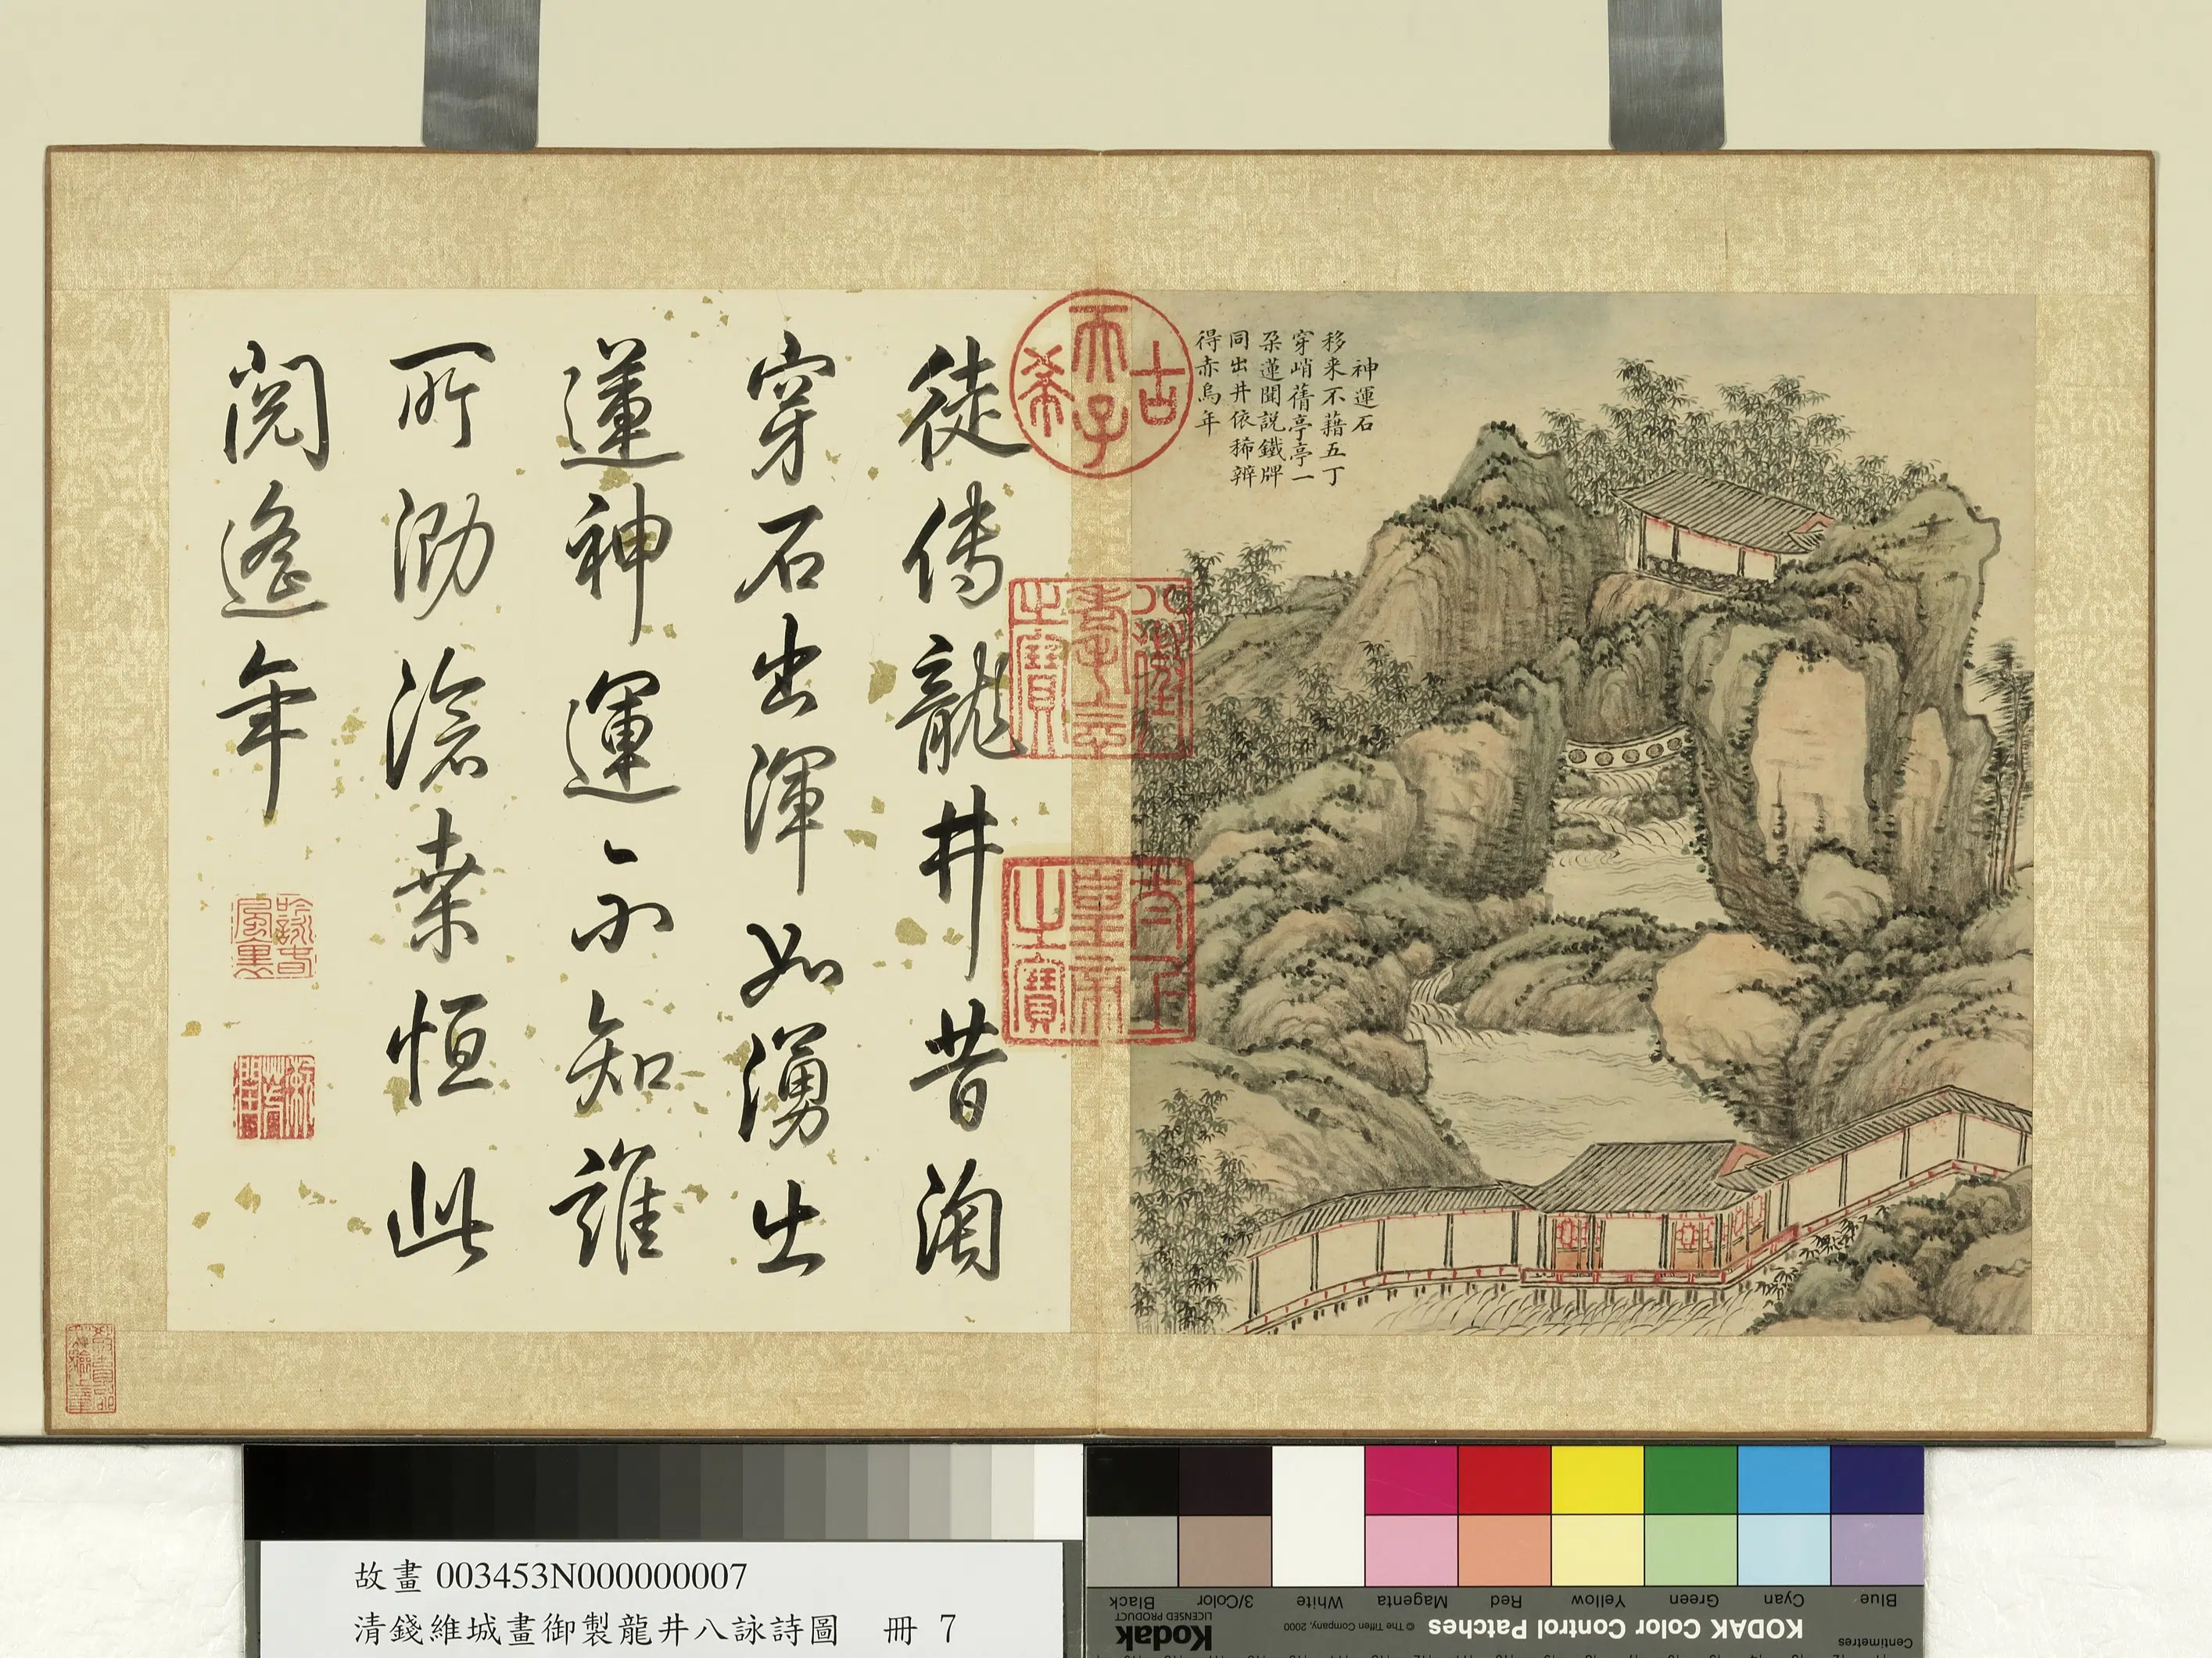 神運石
移來不藉五丁
穿峭蒨亭亭一
朶蓮聞説鐵牌
同出井依稀辨
得赤烏年
古
天子
希
八徵
耄念
之寶
太上
皇帝
之寶
徒傳龍井昔淘
穿石出渾如湧出
蓮神運不知誰
所泐滄桒恒此
閲遙年
故畫003453N000000007
清錢維城畫御製龍井八詠詩圖 冊 7
Black
3/Color
White
Magenta
Red
Yellow
Green
Cyan
Blue
Kodak
LICENSED PRODUCT
© The Tiffen Company, 2000
KODAK Color Control Patches
Centimetres